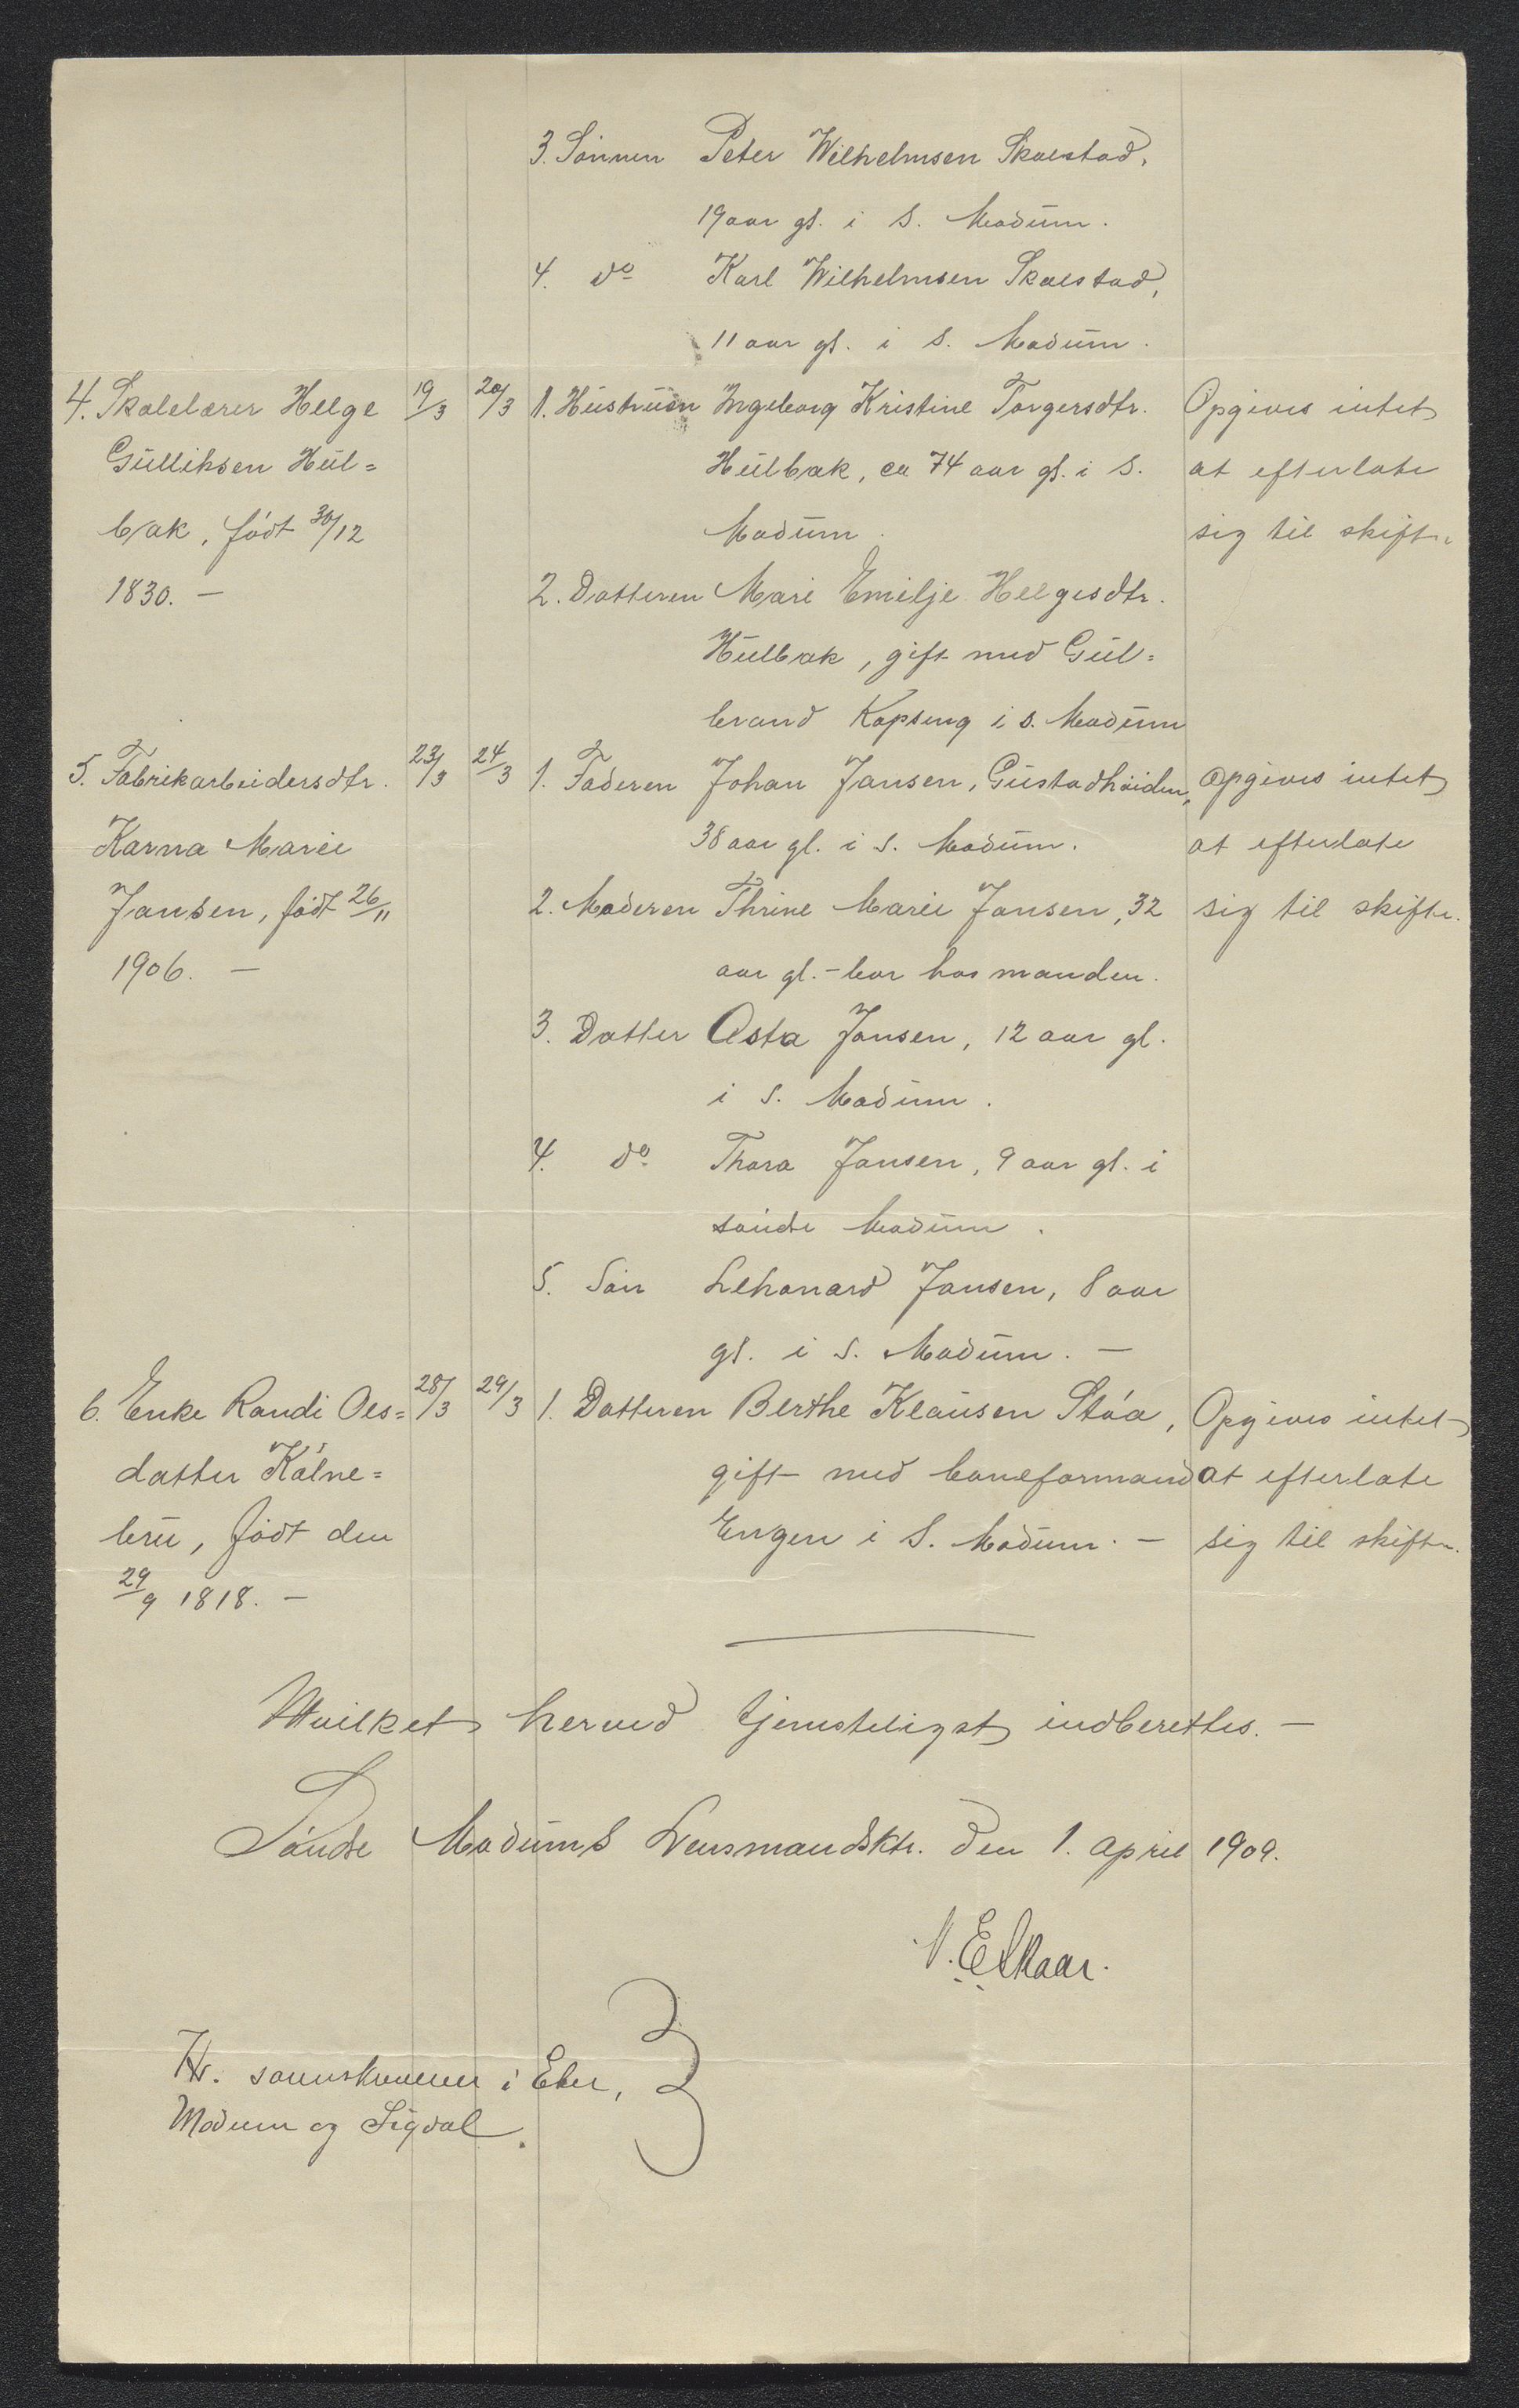 3. Sönnen Peter Wilhelmsen Skalstad,
19 aar gl. i S. Modum.
4. do Karl Wilhelmsen Skalstad,
11 aar gl. i S. Modum.
4. Skolelærer Helge 19/3 20/3 1. Hustruen Ingeborg Kristine Torgersdtr. Opgives intet
Gulliksen Hul= Hulbak, ca 74 aar gl. i S. at efterlate
bak, født 30/12 Modum. sig til skifte
1830. — 2. Datteren Mari Emilje Helgesdtr.
Hulbak, gift med Gul=
brand Kopseng i S. Modum
5. Fabrikarbeidersdtr. 23/3 24/3 1. Faderen Johan Jansen, Gustadheiden, Opgives intet
Karna Marie 38 aar gl. i S. Modum. at efterlate
Jansen, født 26/11 2. Moderen Thrine Marie Jansen, 32 sig til skifte.
1906. — aar gl. - bor hos manden.
3. Datter Asta Jansen, 12 aar gl.
i S. Modum.
4. do Thora Jansen, 9 aar gl. i
søndre Modum.
5. Sön Lehonard Jansen, 8 aar
gl. i S. Modum. —
6. Enke Randi Ols= 28/3 29/3 1. Datteren Berthe Klausen Støa, Opgives intet
datter Kølne= gift med baneformand at efterlate
bru, født den Engen i S. Modum. — sig til skifte.
29/9 1818. —
Hvilket herved tjensteligst indberettes. —
Søndre Modums Lensmandsktr. den 1. april 1909.
N. E. Skaar.
Hr. sorenskriveren i Eker,
Modum og Sigdal.